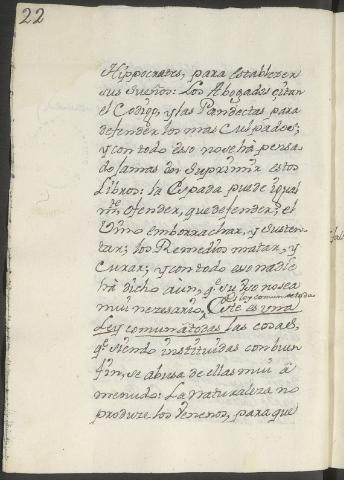 22
Hippocrates, para establezer
sus sueños: Los Abogados citan
el Codigo, y las Pandectas para
defender los mas Culpados;
y con todo eso no se há pensa
do jamas en suprimir estos
Libros: la Espada puede igual
mte ofender, que defender; el
Vino emborrachar, y susten
tar; los Remedios matar, y
Curar; y con todo eso nadie
há dicho aùn, qe su uso no sea
mui nezesario,
Este es una
Ley comun à todas las cosas,
qe siendo instituidas con buen
fin, se abusa de ellas mui à
menudo: La Naturaleza no
produze los Venenos, para que